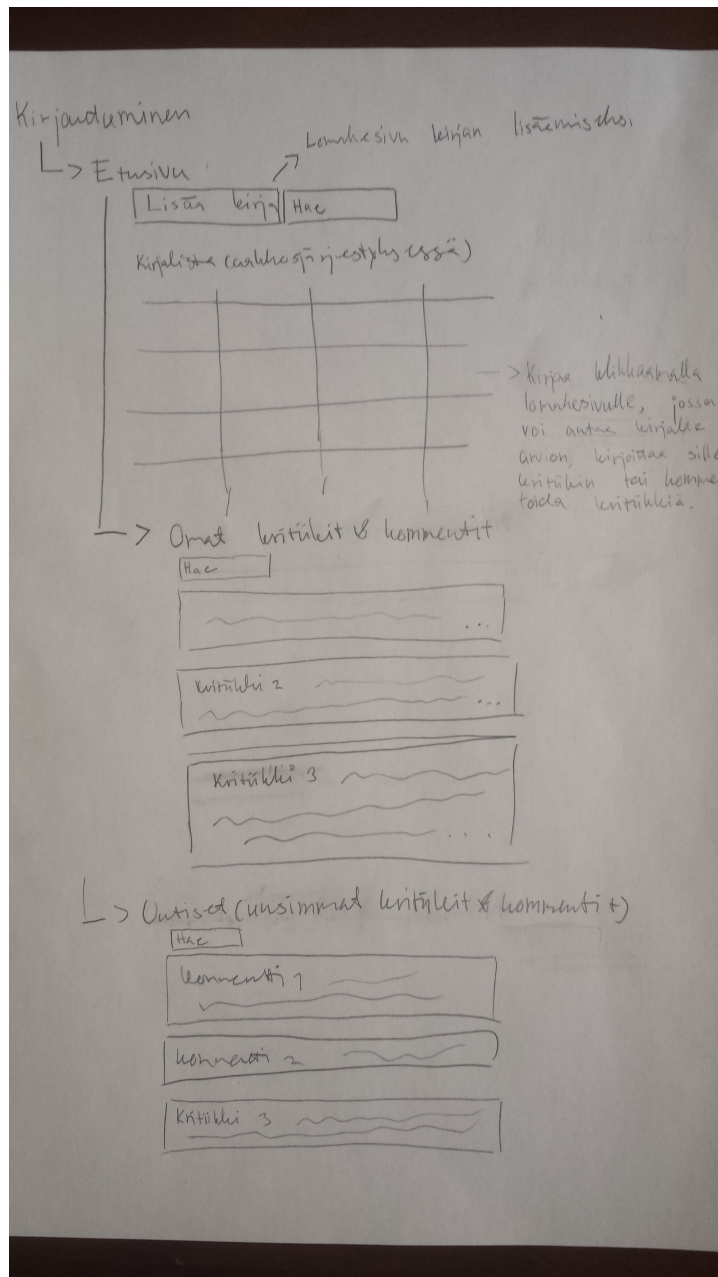 Kirjautuminen
Lomakesivu kirjan lisäämiseksi
Etusivu
Lisää kirja
Hae
Kirjalista (aakkosjärjestyksessä)
Kirjaa klikkaamalla
lomakesivulle, jossa
voi antaa kirjalle
arvion, kirjoittaa sille
kritiikin tai komme
toida kritiikkiä.
Omat kritiikit & kommentit
Hae
...
Kritiikki 2
...
Kritiikki 3
...
Uutiset (uusimmat kritiikit & kommentit)
Hae
kommentti 1
kommentti 2
Kritiikki 3